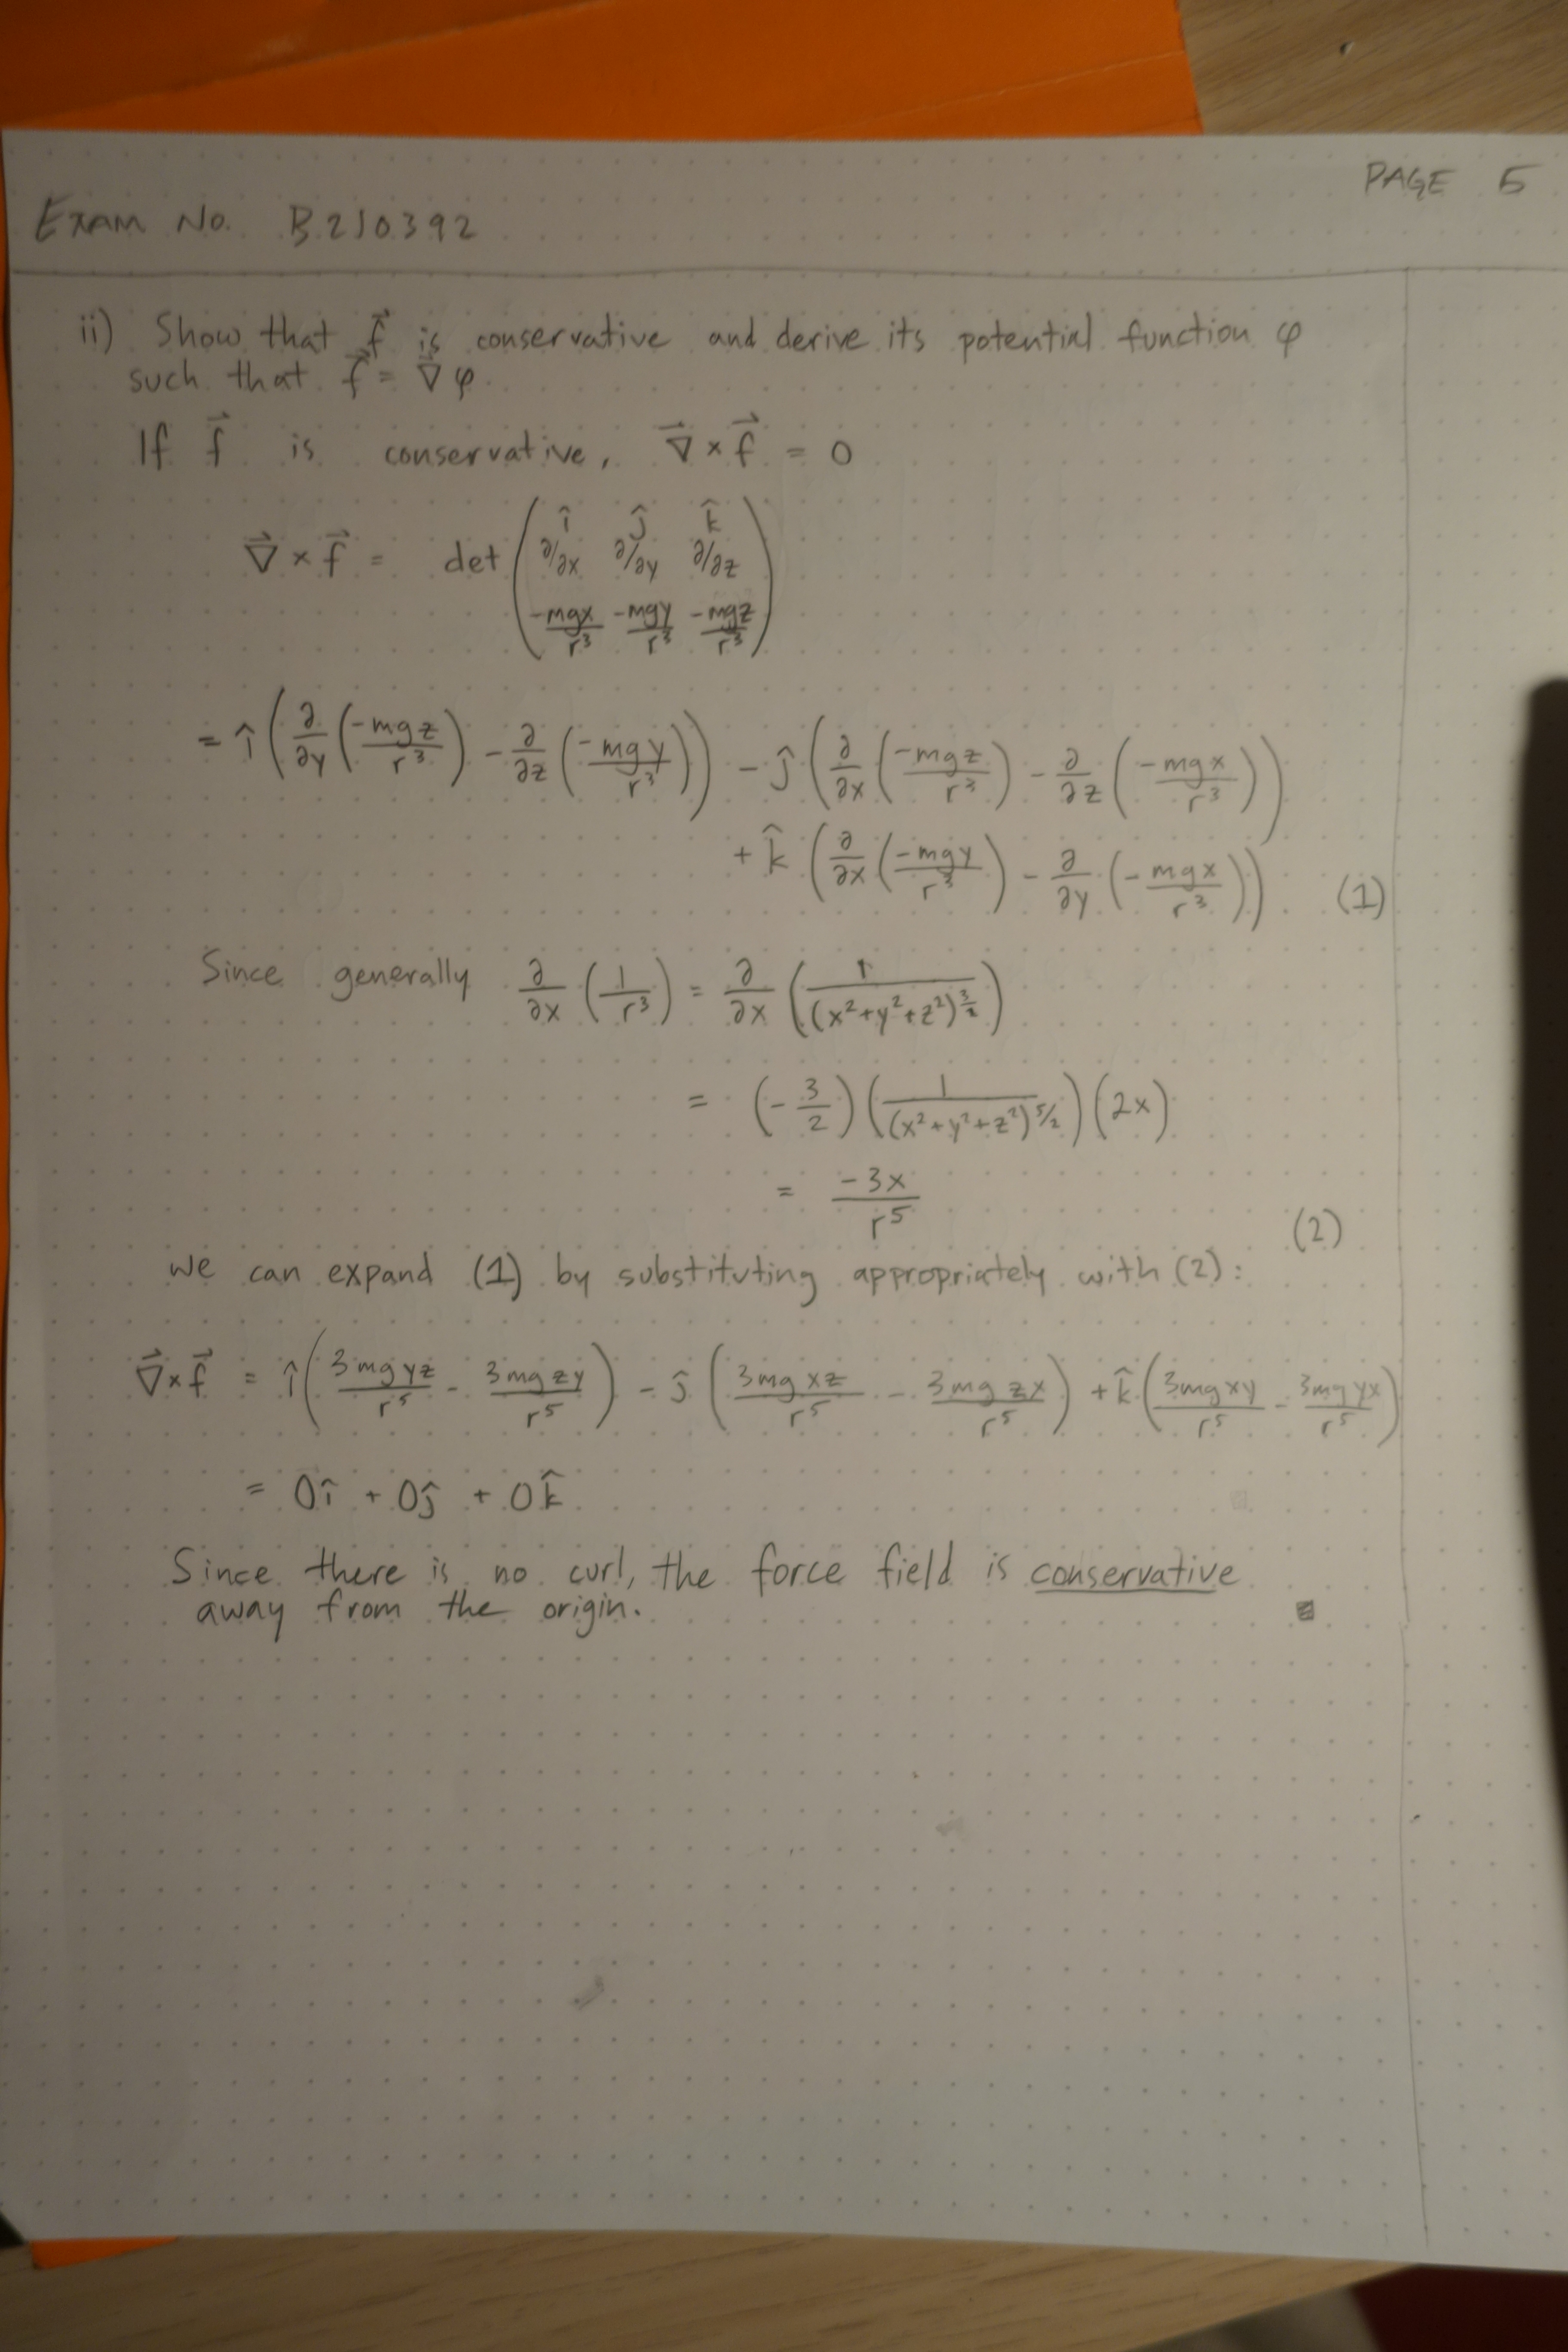 PAGE 5
EXAM No. B210392
ii) Show that f⃗ is conservative and derive its potential function φ
such that f⃗ = ∇⃗φ.
If f⃗ is conservative, ∇⃗ × f⃗ = 0
∇⃗ × f⃗ = det ( î ĵ k̂
∂/∂x ∂/∂y ∂/∂z
-mgx/r³ -mgy/r³ -mgz/r³ )
= î ( ∂/∂y (-mgz/r³) - ∂/∂z (-mgy/r³) ) - ĵ ( ∂/∂x (-mgz/r³) - ∂/∂z (-mgx/r³) )
+ k̂ ( ∂/∂x (-mgy/r³) - ∂/∂y (-mgx/r³) ) (1)
Since generally ∂/∂x (1/r³) = ∂/∂x ( 1/(x²+y²+z²)^(3/2) )
= (-3/2) ( 1/(x²+y²+z²)^(5/2) ) (2x)
= -3x/r⁵ (2)
we can expand (1) by substituting appropriately with (2):
∇⃗×f⃗ = î ( 3mgyz/r⁵ - 3mgzy/r⁵ ) - ĵ ( 3mgxz/r⁵ - 3mgzx/r⁵ ) + k̂ ( 3mgxy/r⁵ - 3mgyx/r⁵ )
= 0î + 0ĵ + 0k̂
Since there is no curl, the force field is conservative
away from the origin.